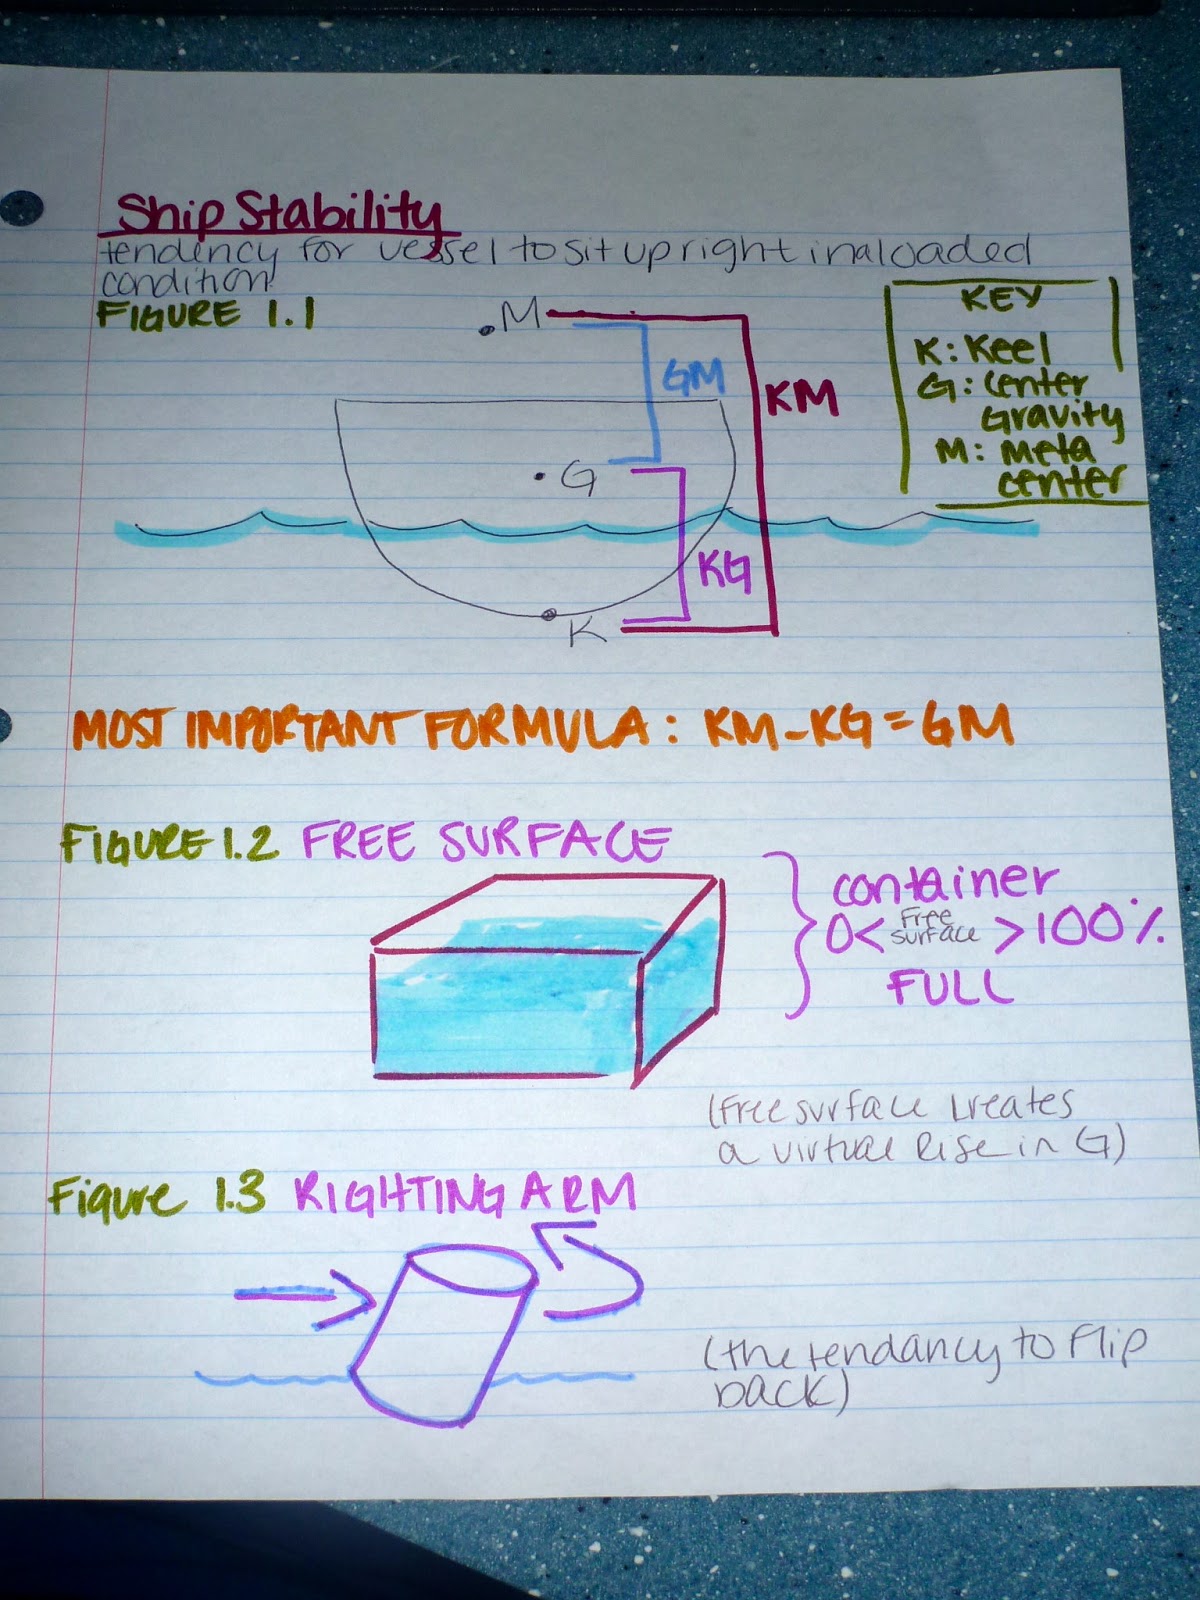 Ship Stability
tendency for vessel to sit upright in a loaded
condition
FIGURE 1.1
M
GM
KM
G
KG
K
KEY
K: Keel
G: Center
Gravity
M: Meta
center
MOST IMPORTANT FORMULA: KM-KG=GM
FIGURE 1.2 FREE SURFACE
container
0< Free surface >100%
FULL
(Free surface creates
a virtual Rise in G)
Figure 1.3 RIGHTING ARM
(the tendancy to flip
back)